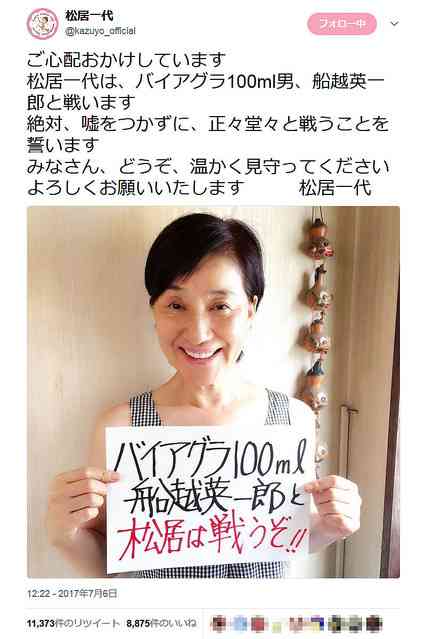 松居一代
@kazuyo_official
フォロー中
ご心配おかけしています
松居一代は、バイアグラ100ml男、船越英一
郎と戦います
絶対、嘘をつかずに、正々堂々と戦うことを
誓います
みなさん、どうぞ、温かく見守ってください
よろしくお願いいたします　　　松居一代
バイアグラ100ml
船越英一郎と
松居は戦うぞ!!
12:22 - 2017年7月6日
11,373件のリツイート 8,875件のいいね